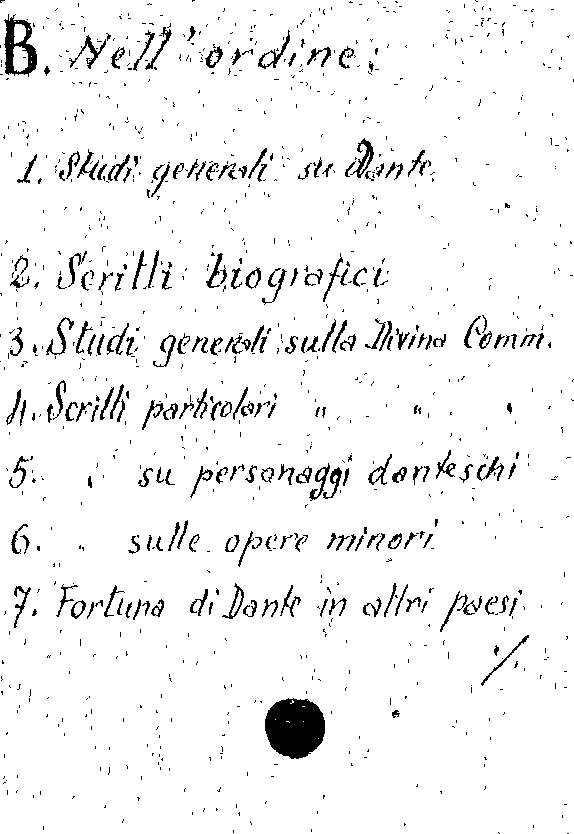 B. Nell'ordine:
1. Studi generali su Dante
2. Scritti biografici
3. Studi generali sulla Divina Comm.
4. Scritti particolari " " "
5. " su personaggi danteschi
6. " sulle opere minori
7. Fortuna di Dante in altri paesi
./.